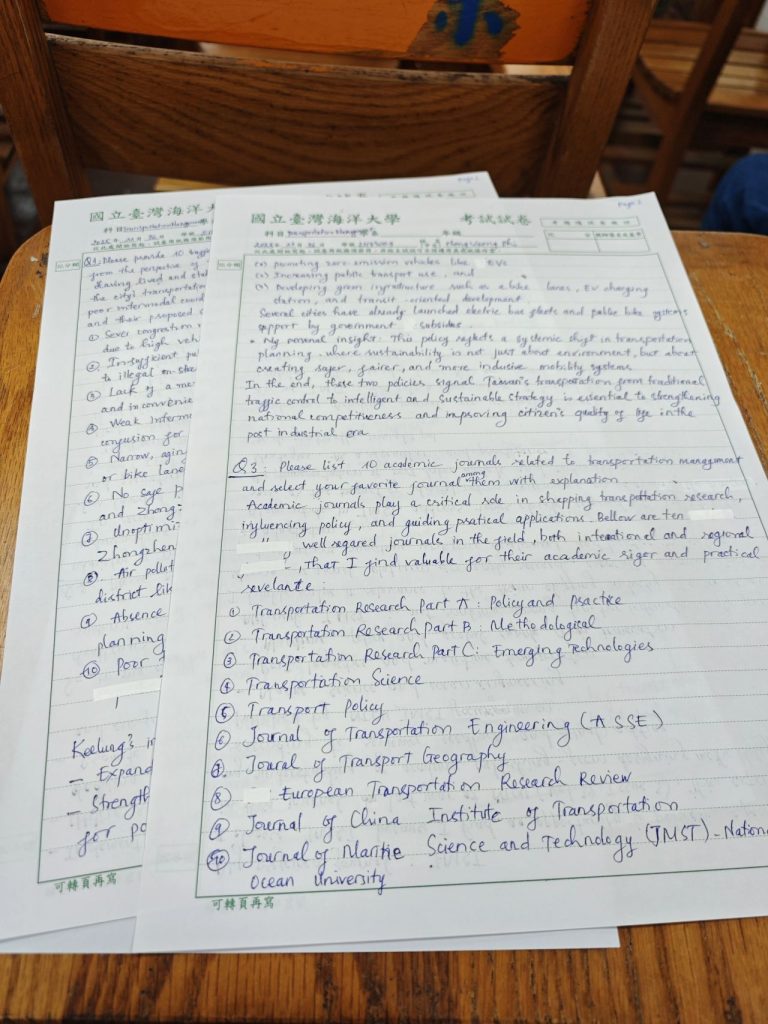 Page 2
國立臺灣海洋大學 考試試卷
科目 學系 年級
(a) promoting zero-emission vehicles like EVs
(b) Increasing public transport use, and
(c) Developing green infrastructure such as a bike lanes, EV charging
station, and transit-oriented development.
Several cities have already launched electric bus fleets and public bike systems
support by government subsidies.
* My personal insight: This policy reflects a systemic shift in transportation
planning. where sustainability is not just about environment, but about
creating safer, fairer, and more inclusive mobility systems.
In the end, these two policies signal Taiwan's transportation from traditional
traffic control to intelligent and Sustainable Strategy is essential to strengthening
national competitiveness and improving citizen's quality of life in the
post industrial era
Q3: Please list 10 academic journals related to transportation management
and select your favorite journal among them with explanation.
Academic journals play a critical role in shapping transpottation research,
influencing policy, and guiding pratical applications. Bellow are ten
well regared journals in the field, both intentional and regional
, that I find valuable for their academic riger and practical
revelante:
① Transportation Research Part A: Policy and Practice
② Transportation Research Part B: Methodological
③ Transportation Research Part C: Emerging Technologies
④ Transportation Science
⑤ Transport Policy
⑥ Journal of Transportation Engineering (ASSE)
⑦ Joural of Transport Geography
⑧ European Transportation Research Review
⑨ Journal of China Institute of Transportation
⑩ Journal of Maritie Science and Technology (JMST) - Nation
Ocean University
可轉頁再寫
國立臺灣海洋大
科目
Q1: Please provide 10
from the perspective of
Having lived and
the city's transportation
poor intermodal
and their proposed
① Sever congestion
due to high veh
② Insufficient
to illegal
③ Lack of a
and inconvenie
④ Weak Interm
confusion for
⑤ Narrow, aging
or bike lane
⑥ No safe p
and Zhong
⑦ Unoptimi
Zhongzhen
⑧ Air pollut
district lik
⑨ Absence
planning
⑩ Poor
Keelung's in
– Expand
– Strength
for po
可轉頁再寫